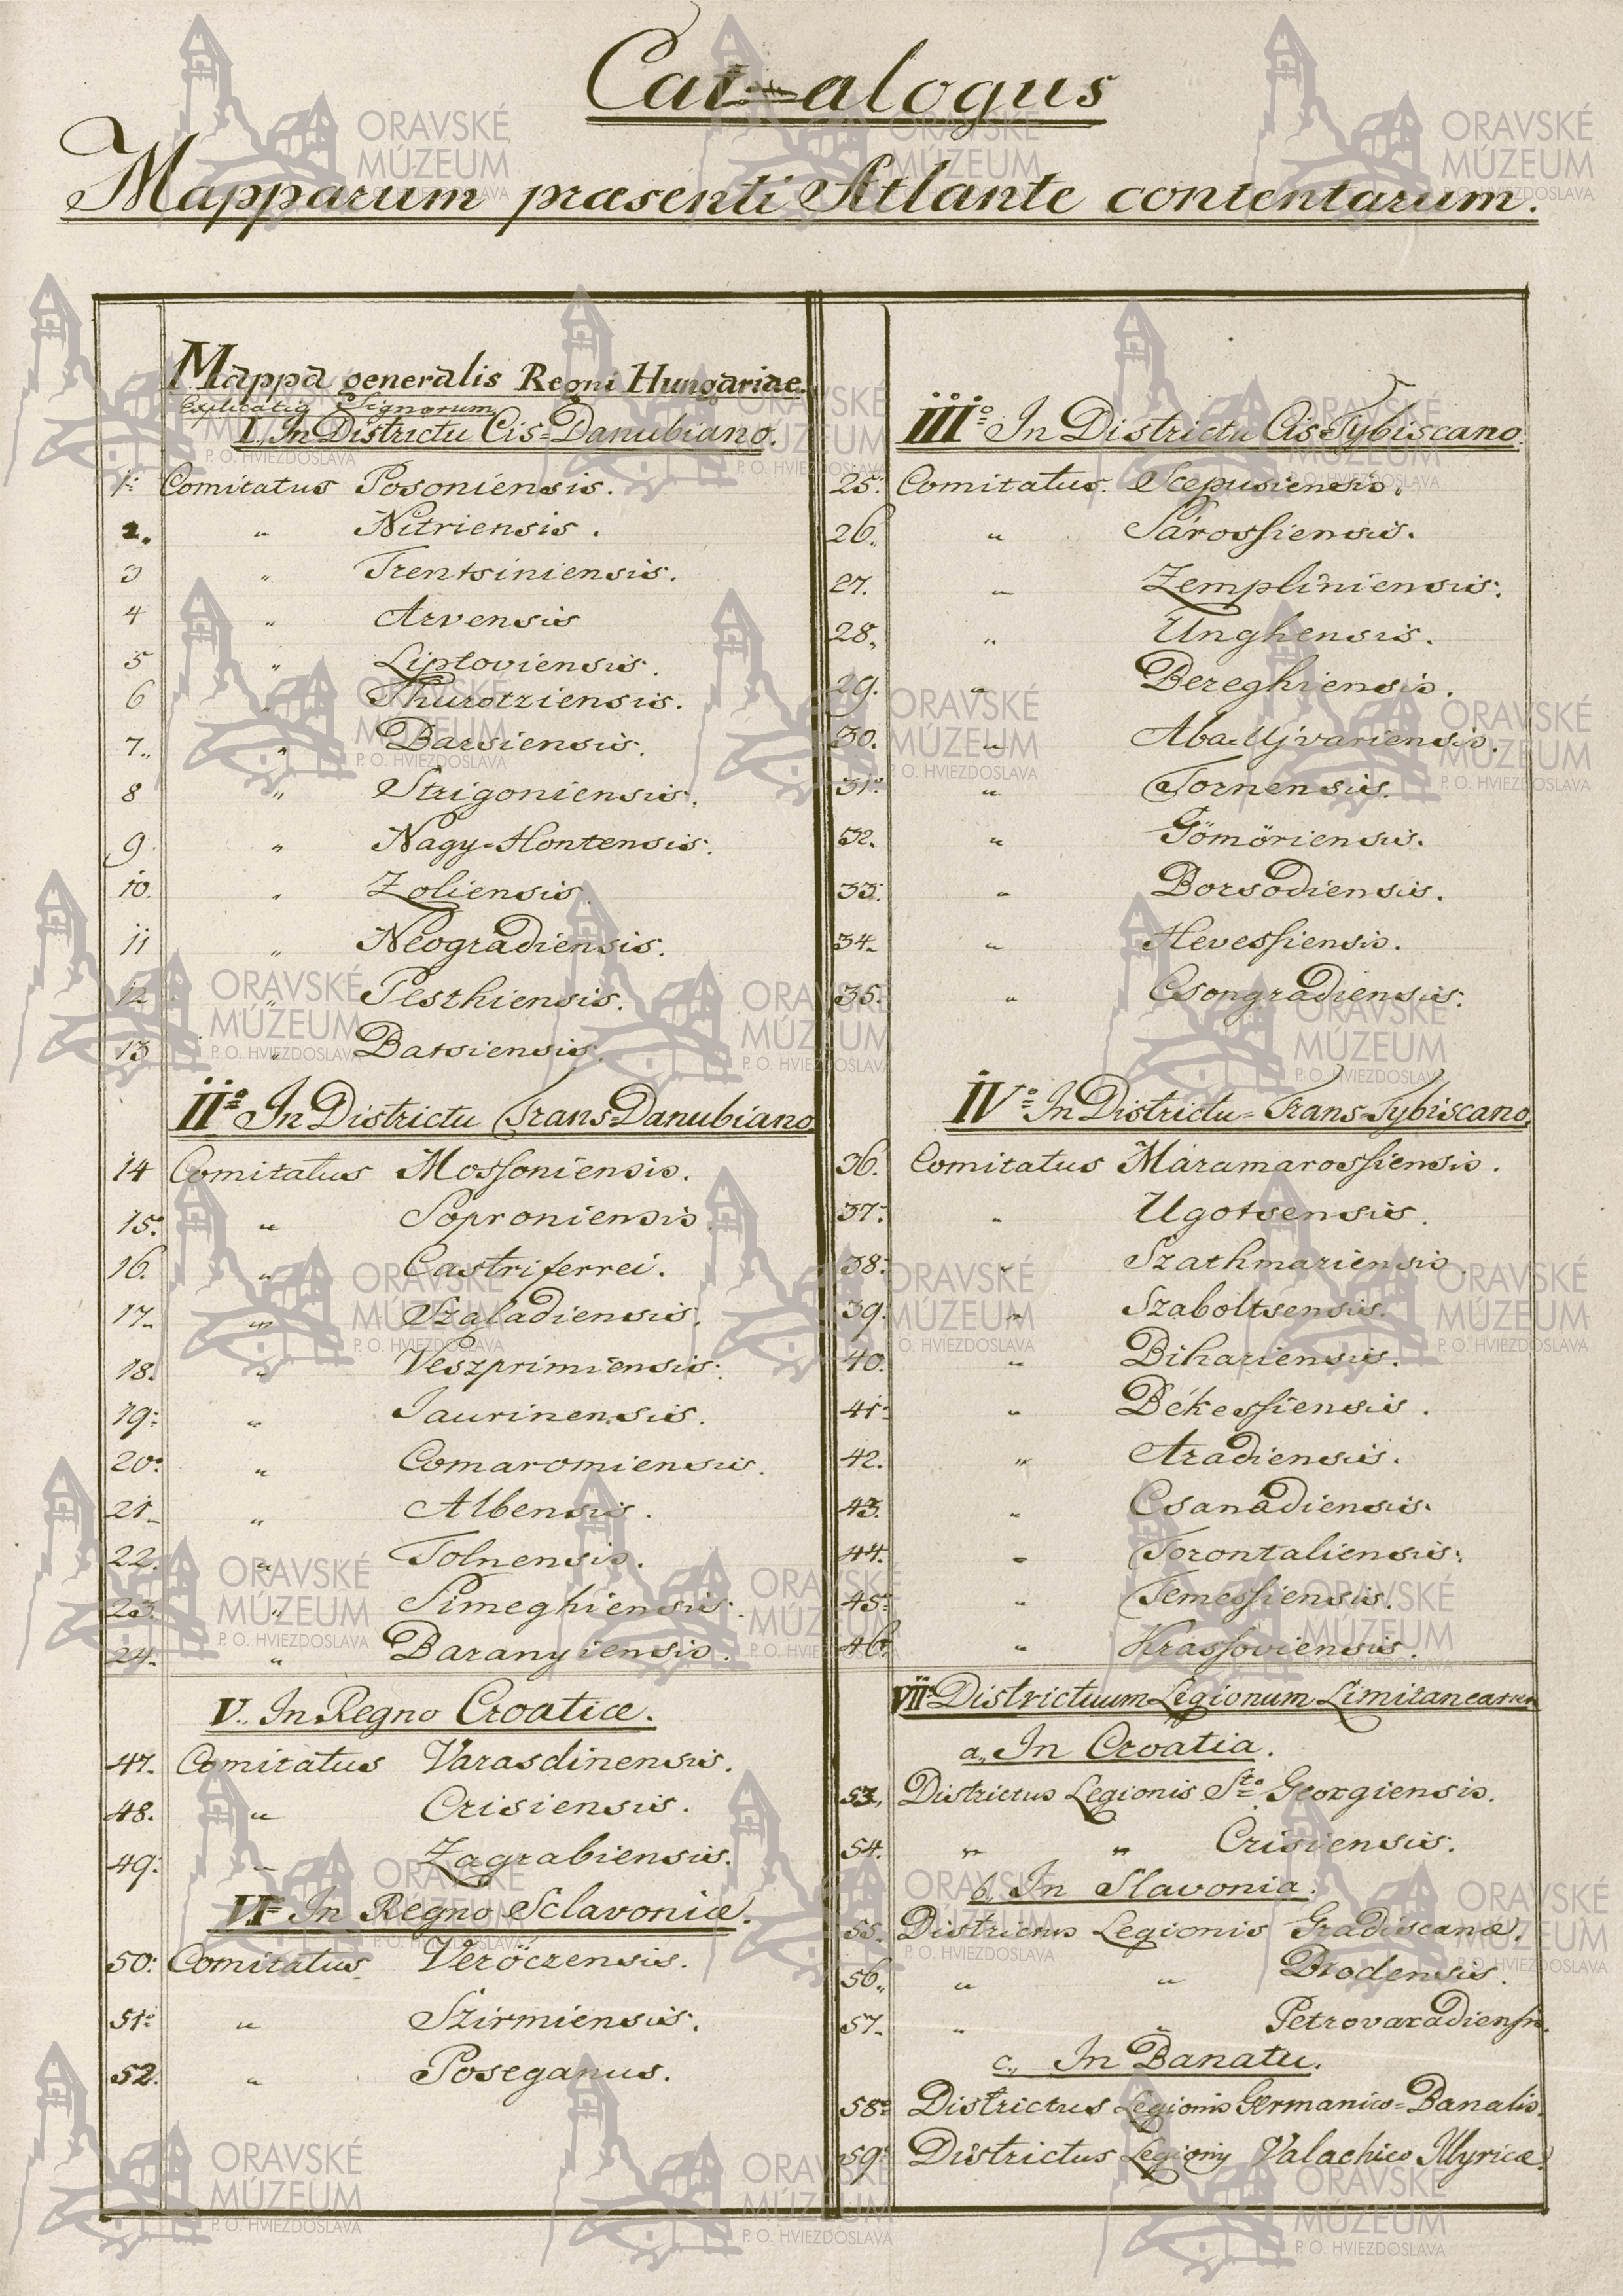 Catalogus
Mapparum præsenti Atlante contentarum.
Mappa generalis Regni Hungariae.
Explicatio Signorum
I. In Districtu Cis=Danubiano.
1. Comitatus Posoniensis.
2. " Nitriensis.
3 " Trentsiniensis.
4 " Arvensis
5 " Liptoviensis.
6 " Thurotziensis.
7. " Barsiensis.
8 " Strigoniensis.
9. " Nagy=Hontensis.
10. " Zoliensis.
11 " Neogradiensis.
12 " Pesthiensis.
13 " Batsiensis.
II.o In Districtu Trans=Danubiano
14 Comitatus Mossoniensis.
15. " Soproniensis.
16. " Castri ferrei.
17. " Szaladiensis.
18. " Veszprimiensis.
19. " Jaurinensis.
20. " Comaromiensis.
21. " Albensis.
22. " Tolnensis.
23. " Simeghiensis.
24. " Baranyiensis.
V. In Regno Croatiæ.
47. Comitatus Varasdinensis.
48. " Crisiensis.
49. " Zagrabiensis.
VI. In Regno Sclavoniæ.
50. Comitatus Veröczensis.
51. " Szirmiensis.
52. " Poseganus.
III.o In Districtu Cis=Tybiscano.
25. Comitatus. Scepusiensis.
26. " Sárossiensis.
27. " Zempliniensis.
28. " Unghensis.
29. " Bereghiensis.
30. " Aba=Ujvariensis.
31. " Tornensis.
32. " Gömöriensis.
33. " Borsodiensis.
34. " Hevessiensis.
35. " Csongradiensis.
IV.o In Districtu=Trans=Tybiscano.
36. Comitatus Máramarossiensis.
37. " Ugotsensis.
38. " Szathmariensis.
39. " Szaboltsensis.
40. " Bihariensis.
41. " Békessiensis.
42. " Aradiensis.
43. " Csanadiensis.
44. " Torontaliensis.
45. " Temessiensis.
46. " Krassoviensis.
VII. Districtuum Legionum Limitanearum
a., In Croatia.
53. Districtus Legionis Sto Georgiensis.
54. " " Crisiensis.
b. In Slavonia.
55. Districtus Legionis Gradiscanæ.
56. " " Brodensis.
57. " " Petrovaradiensis.
c., In Banatu.
58. Districtus Legionis Germanico=Banalis.
59. Districtus Legionis Valachico Illyricæ.
ORAVSKÉ
MÚZEUM
P. O. HVIEZDOSLAVA